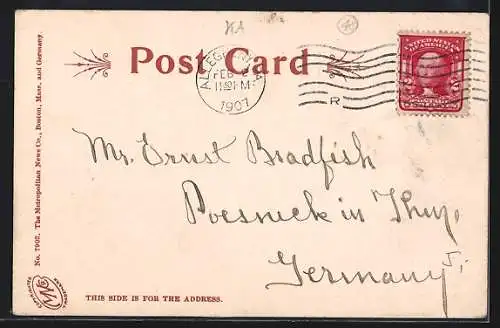 KA
Post Card
ALLEGHENY, PA.
FEB
1907
R
UNITED STATES
OF AMERICA
Mr. Ernst Bradfish
Poesneck in Thur.
Germany
No. 7902. The Metropolitan News Co., Boston, Mass. and Germany.
THIS SIDE IS FOR THE ADDRESS.